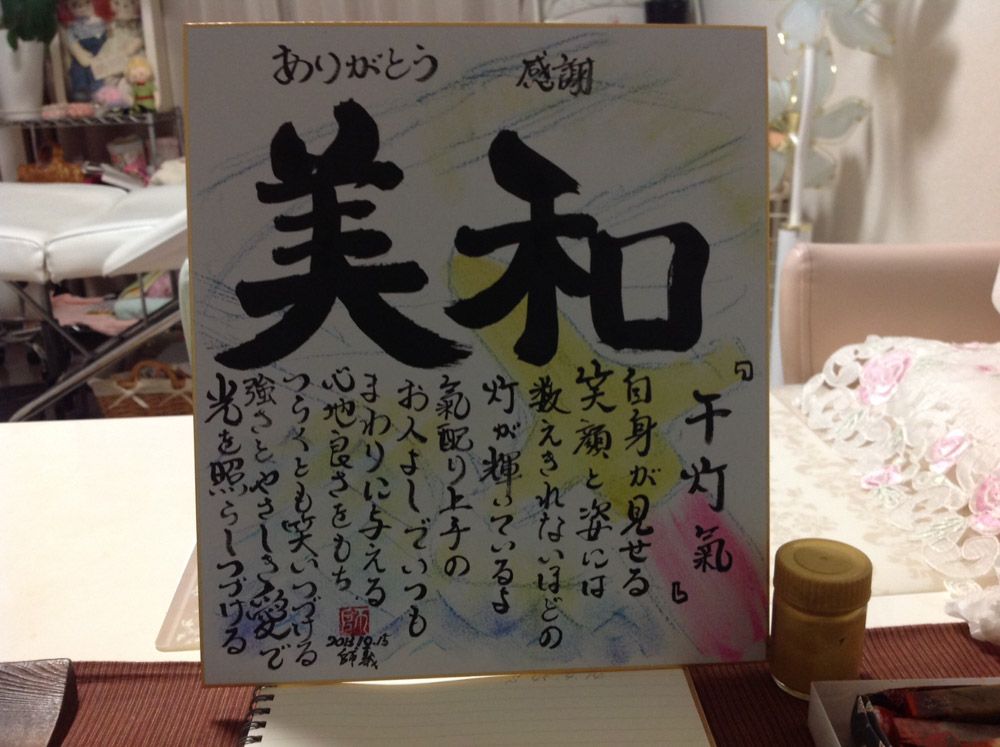 感謝
ありがとう
和美
「千灯氣」
自身が見せる
笑顔と姿には
数えきれないほどの
灯が輝いているよ
氣配り上手の
お人よしでいつも
まわりに与える
心地良さをもち
つらくとも笑いつづける
強さとやさしさ愛で
光を照らしつづける